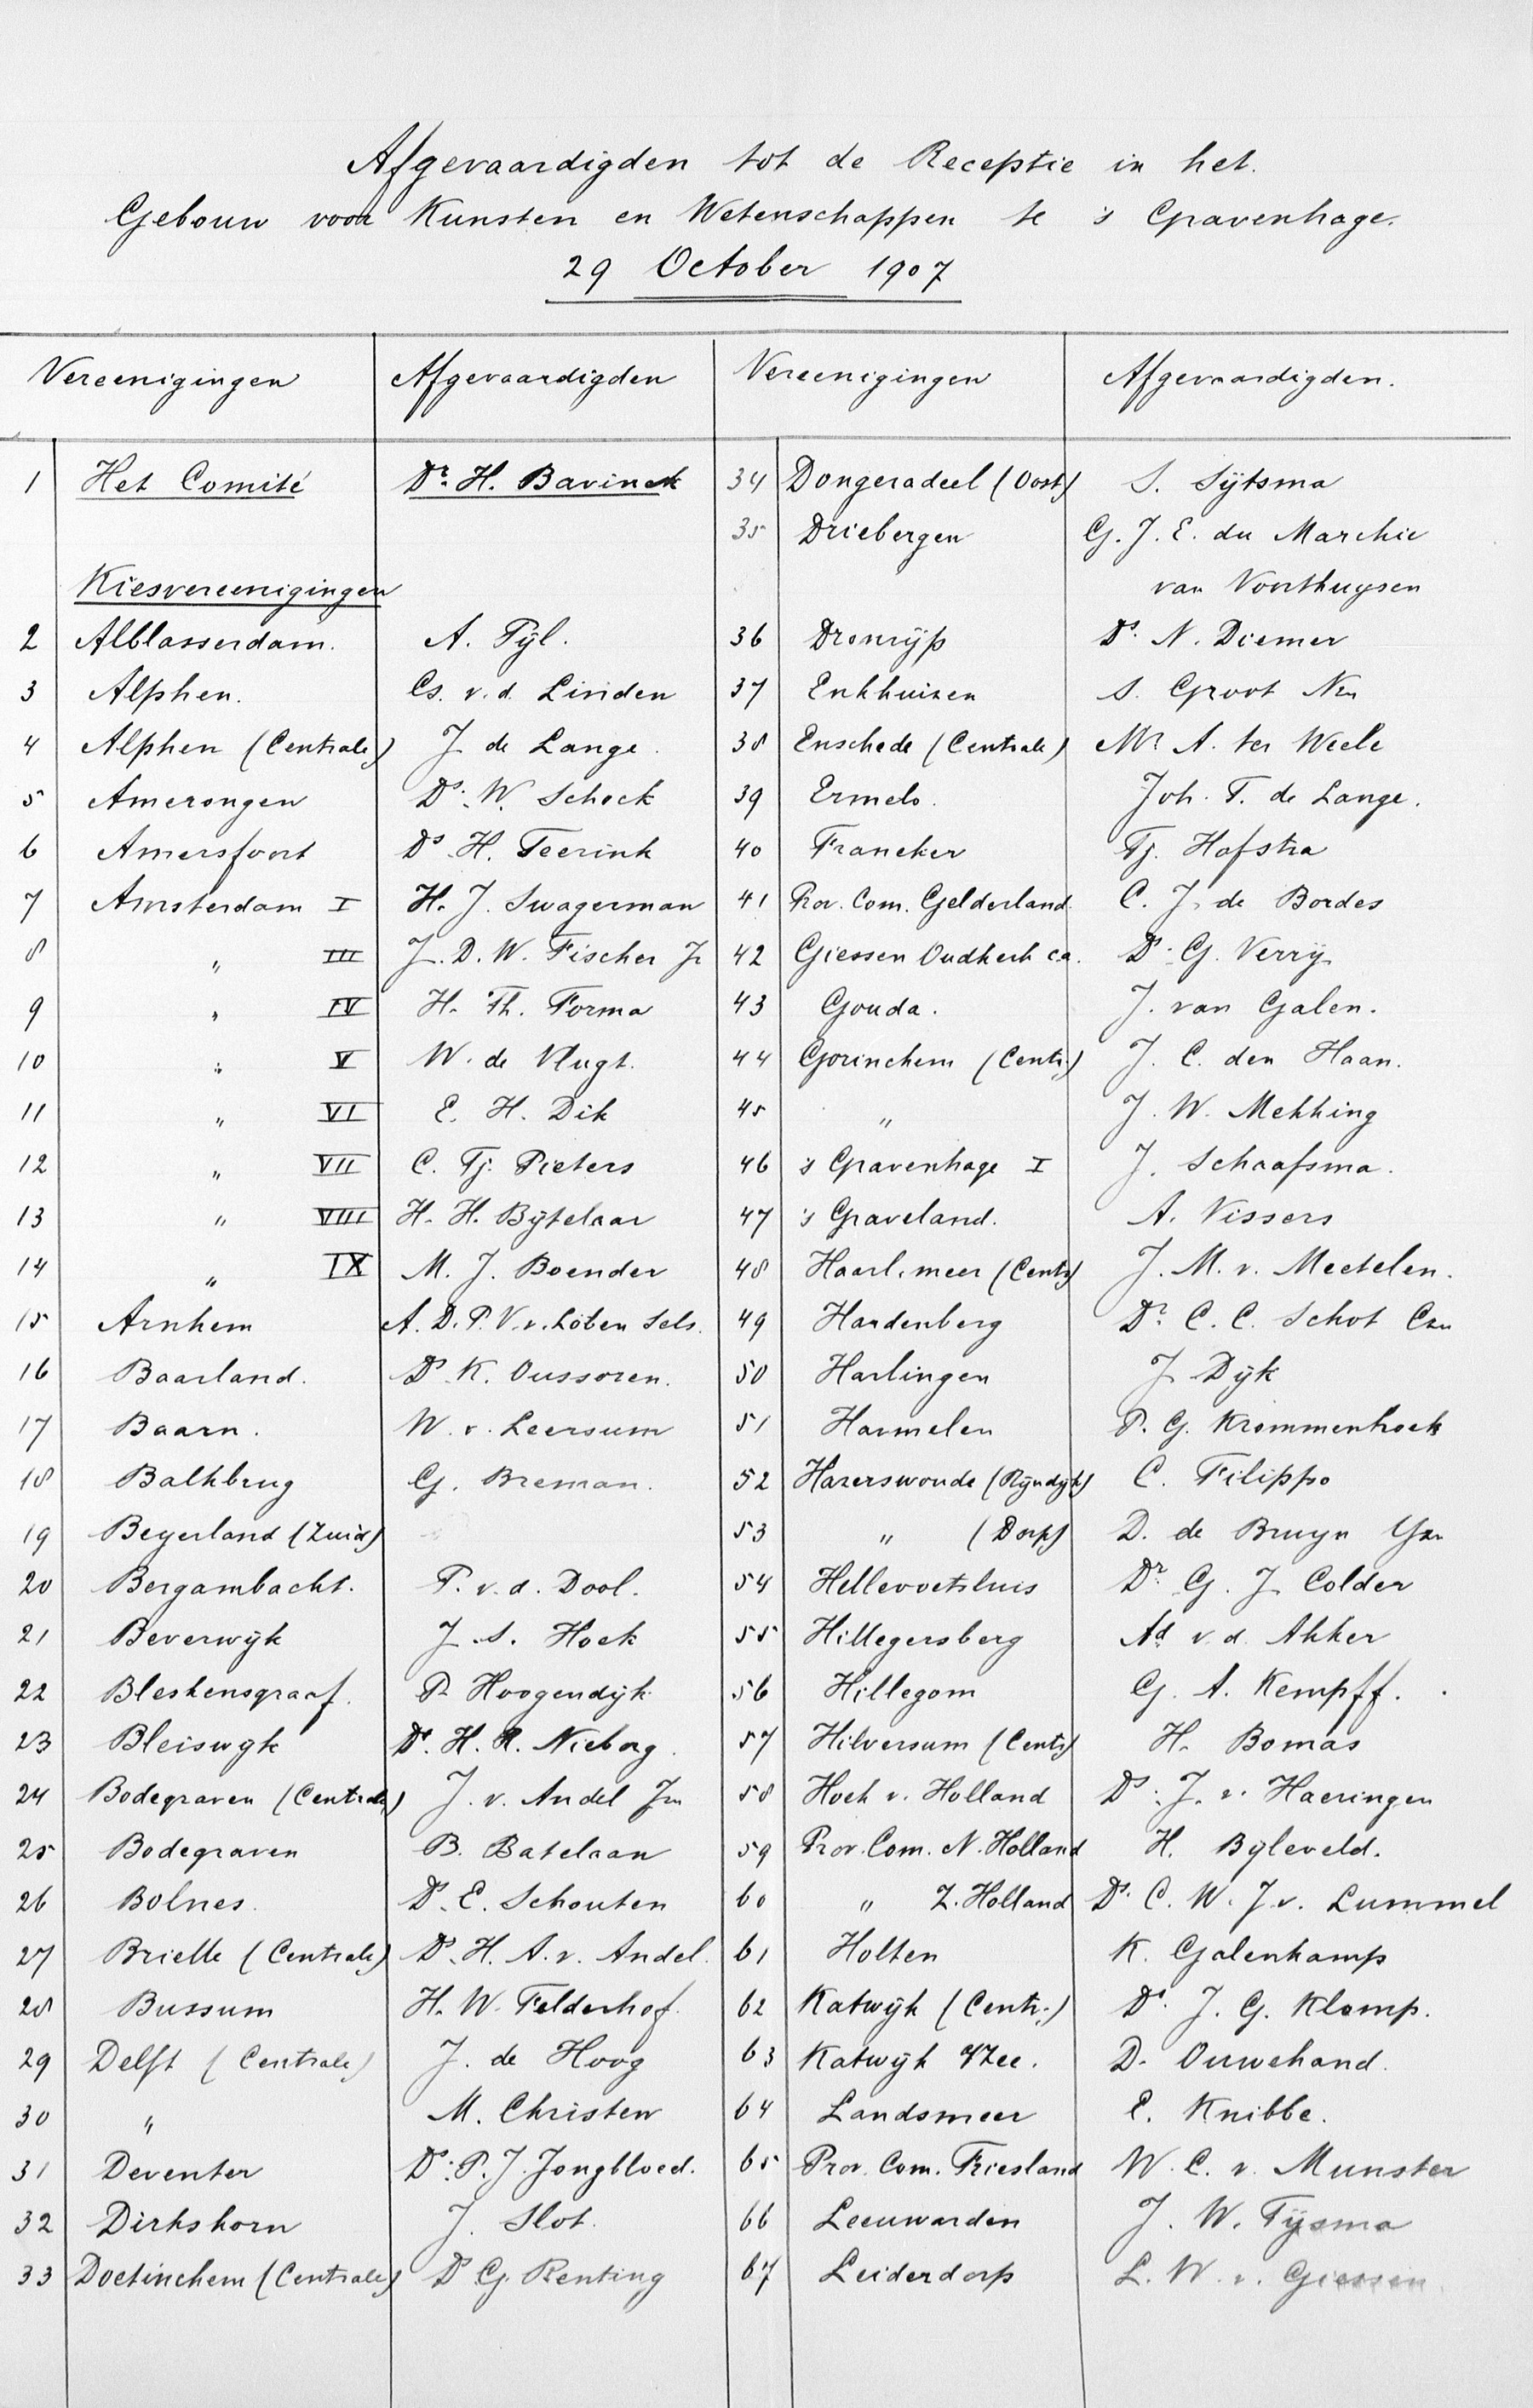 Afgevaardigden tot de Receptie in het.
Gebouw voor Kunsten en Wetenschappen te 's Gravenhage.
29 October 1907
Vereenigingen Afgevaardigden Vereenigingen Afgevaardigden.
1 Het Comité Dr. H. Bavinck
Kiesvereenigingen
2 Alblasserdam. A. Tijl.
3 Alphen. Cs. v.d. Linden
4 Alphen (Centrale) J. de Lange.
5 Amerongen Ds. W. Schock
6 Amersfoort Ds H. Teerink
7 Amsterdam I H. J. Swagerman
8 " III J. D. W. Fischer Jr
9 " IV H. Th. Forma
10 " V W. de Vlugt.
11 " VI E. H. Dik
12 " VII C. Tj. Pieters
13 " VIII H. H. Bijtelaar
14 " IX M. J. Boender
15 Arnhem A. D. P. V. v. Löben Sels.
16 Baarland. Ds K. Oussoren.
17 Baarn. W. v. Leersum
18 Balkbrug G. Breman.
19 Beyerland (Zuid)
20 Bergambacht. P. v. d. Dool.
21 Beverwijk J. S. Hoek
22 Bleskensgraaf. P. Hoogendijk
23 Bleiswijk Ds. H. R. Nieborg.
24 Bodegraven (Centrale) J. v. Andel Jzn
25 Bodegraven B. Batelaan
26 Bolnes. Ds. E. Schouten
27 Brielle (Centrale) Ds. H. A. v. Andel.
28 Bussum H. W. Felderhof.
29 Delft (Centrale) J. de Hoog
30 " M. Christen
31 Deventer Ds. P. J. Jongbloed.
32 Dirkshorn J. Slot.
33 Doetinchem (Centrale) Ds G. Renting
34 Dongeradeel (Oost) S. Sijtsma
35 Driebergen G. J. E. du Marchie
van Voorthuysen
36 Dronrijp Ds. N. Diemer
37 Enkhuizen S. Groot Nzn
38 Enschede (Centrale) Mr A. ter Weele
39 Ermelo. Joh. T. de Lange.
40 Franeker Tj. Hofstra
41 Prov. Com. Gelderland. C. J. de Bordes
42 Giessen Oudkerk c.a. Ds. G. Verrij
43 Gouda. J. van Galen.
44 Gorinchem (Centr.) J. C. den Haan.
45 " J. W. Mekking
46 's Gravenhage I J. Schaafsma.
47 's Graveland. A. Vissers
48 Haarl. meer (Centr) J. M. v. Meetelen.
49 Hardenberg Dr. C. C. Schot Czn
50 Harlingen J. Dijk
51 Harmelen P. G. Krommenhoek
52 Hazerswoude (Rijndijk) C. Filippo
53 " (Dorp) D. de Bruyn Gzn
54 Hellevoetsluis Dr. G. J. Colder
55 Hillegersberg Ad. v. d. Akker
56 Hillegom G. A. Kempff.
57 Hilversum (Centr) H. Bomas
58 Hoek v. Holland Ds. J. v. Haeringen
59 Prov. Com. N. Holland H. Bijleveld.
60 " Z. Holland Ds. C. W. J. v. Lummel
61 Holten K. Galenkamp
62 Katwijk (Centr.) Ds. J. G. Klomp.
63 Katwijk a/Zee. D. Ouwehand.
64 Landsmeer E. Knibbe.
65 Prov. Com. Friesland W. C. v. Munster
66 Leeuwarden J. W. Tijsma
67 Leiderdorp L. W. v. Giessen.